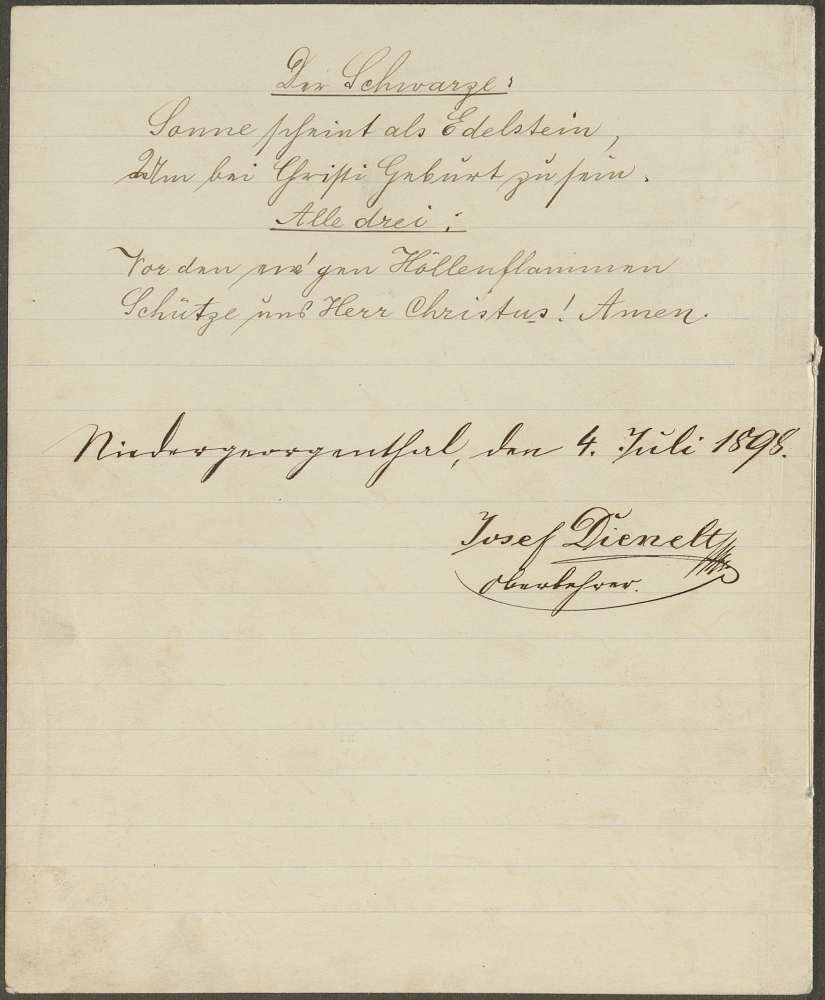 Der Schwarze:
Sonne scheint als Edelstein,
Um bei Christi Geburt zu sein.
Alle drei:
Vor den ew'gen Höllenflammen
Schütze uns Herr Christus! Amen.
Niedergeorgenthal, den 4. Juli 1898.
Josef Dienelt
Oberlehrer.